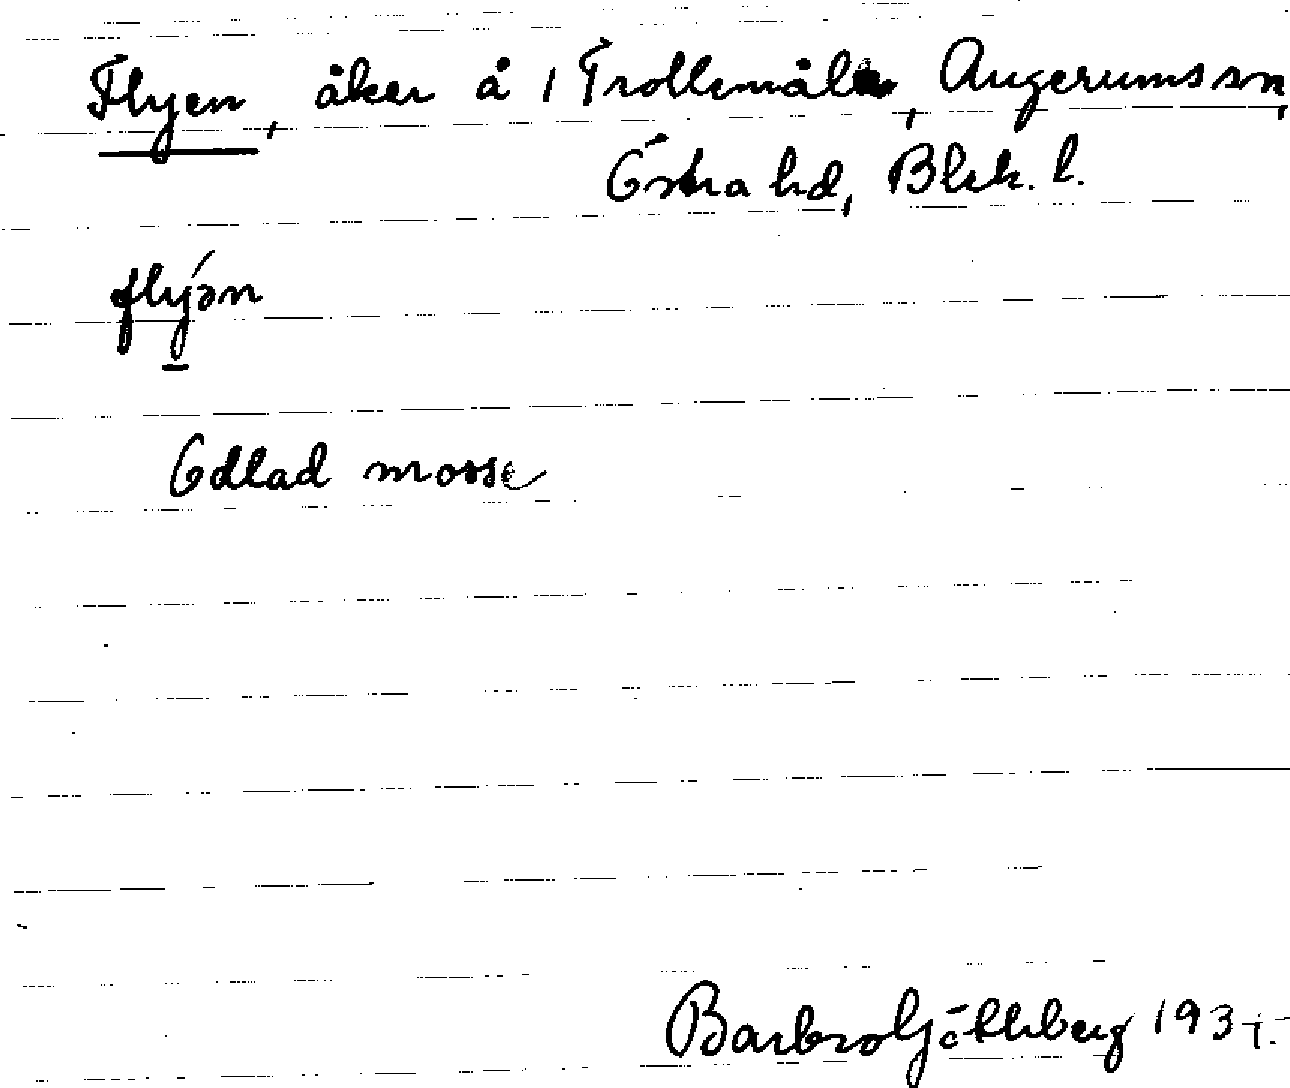 Flyen, åker å 1 Trollemåla, Augerums sn,
Östra hd, Blek. l.
flýən
Odlad mosse
Barbro Göthberg 193